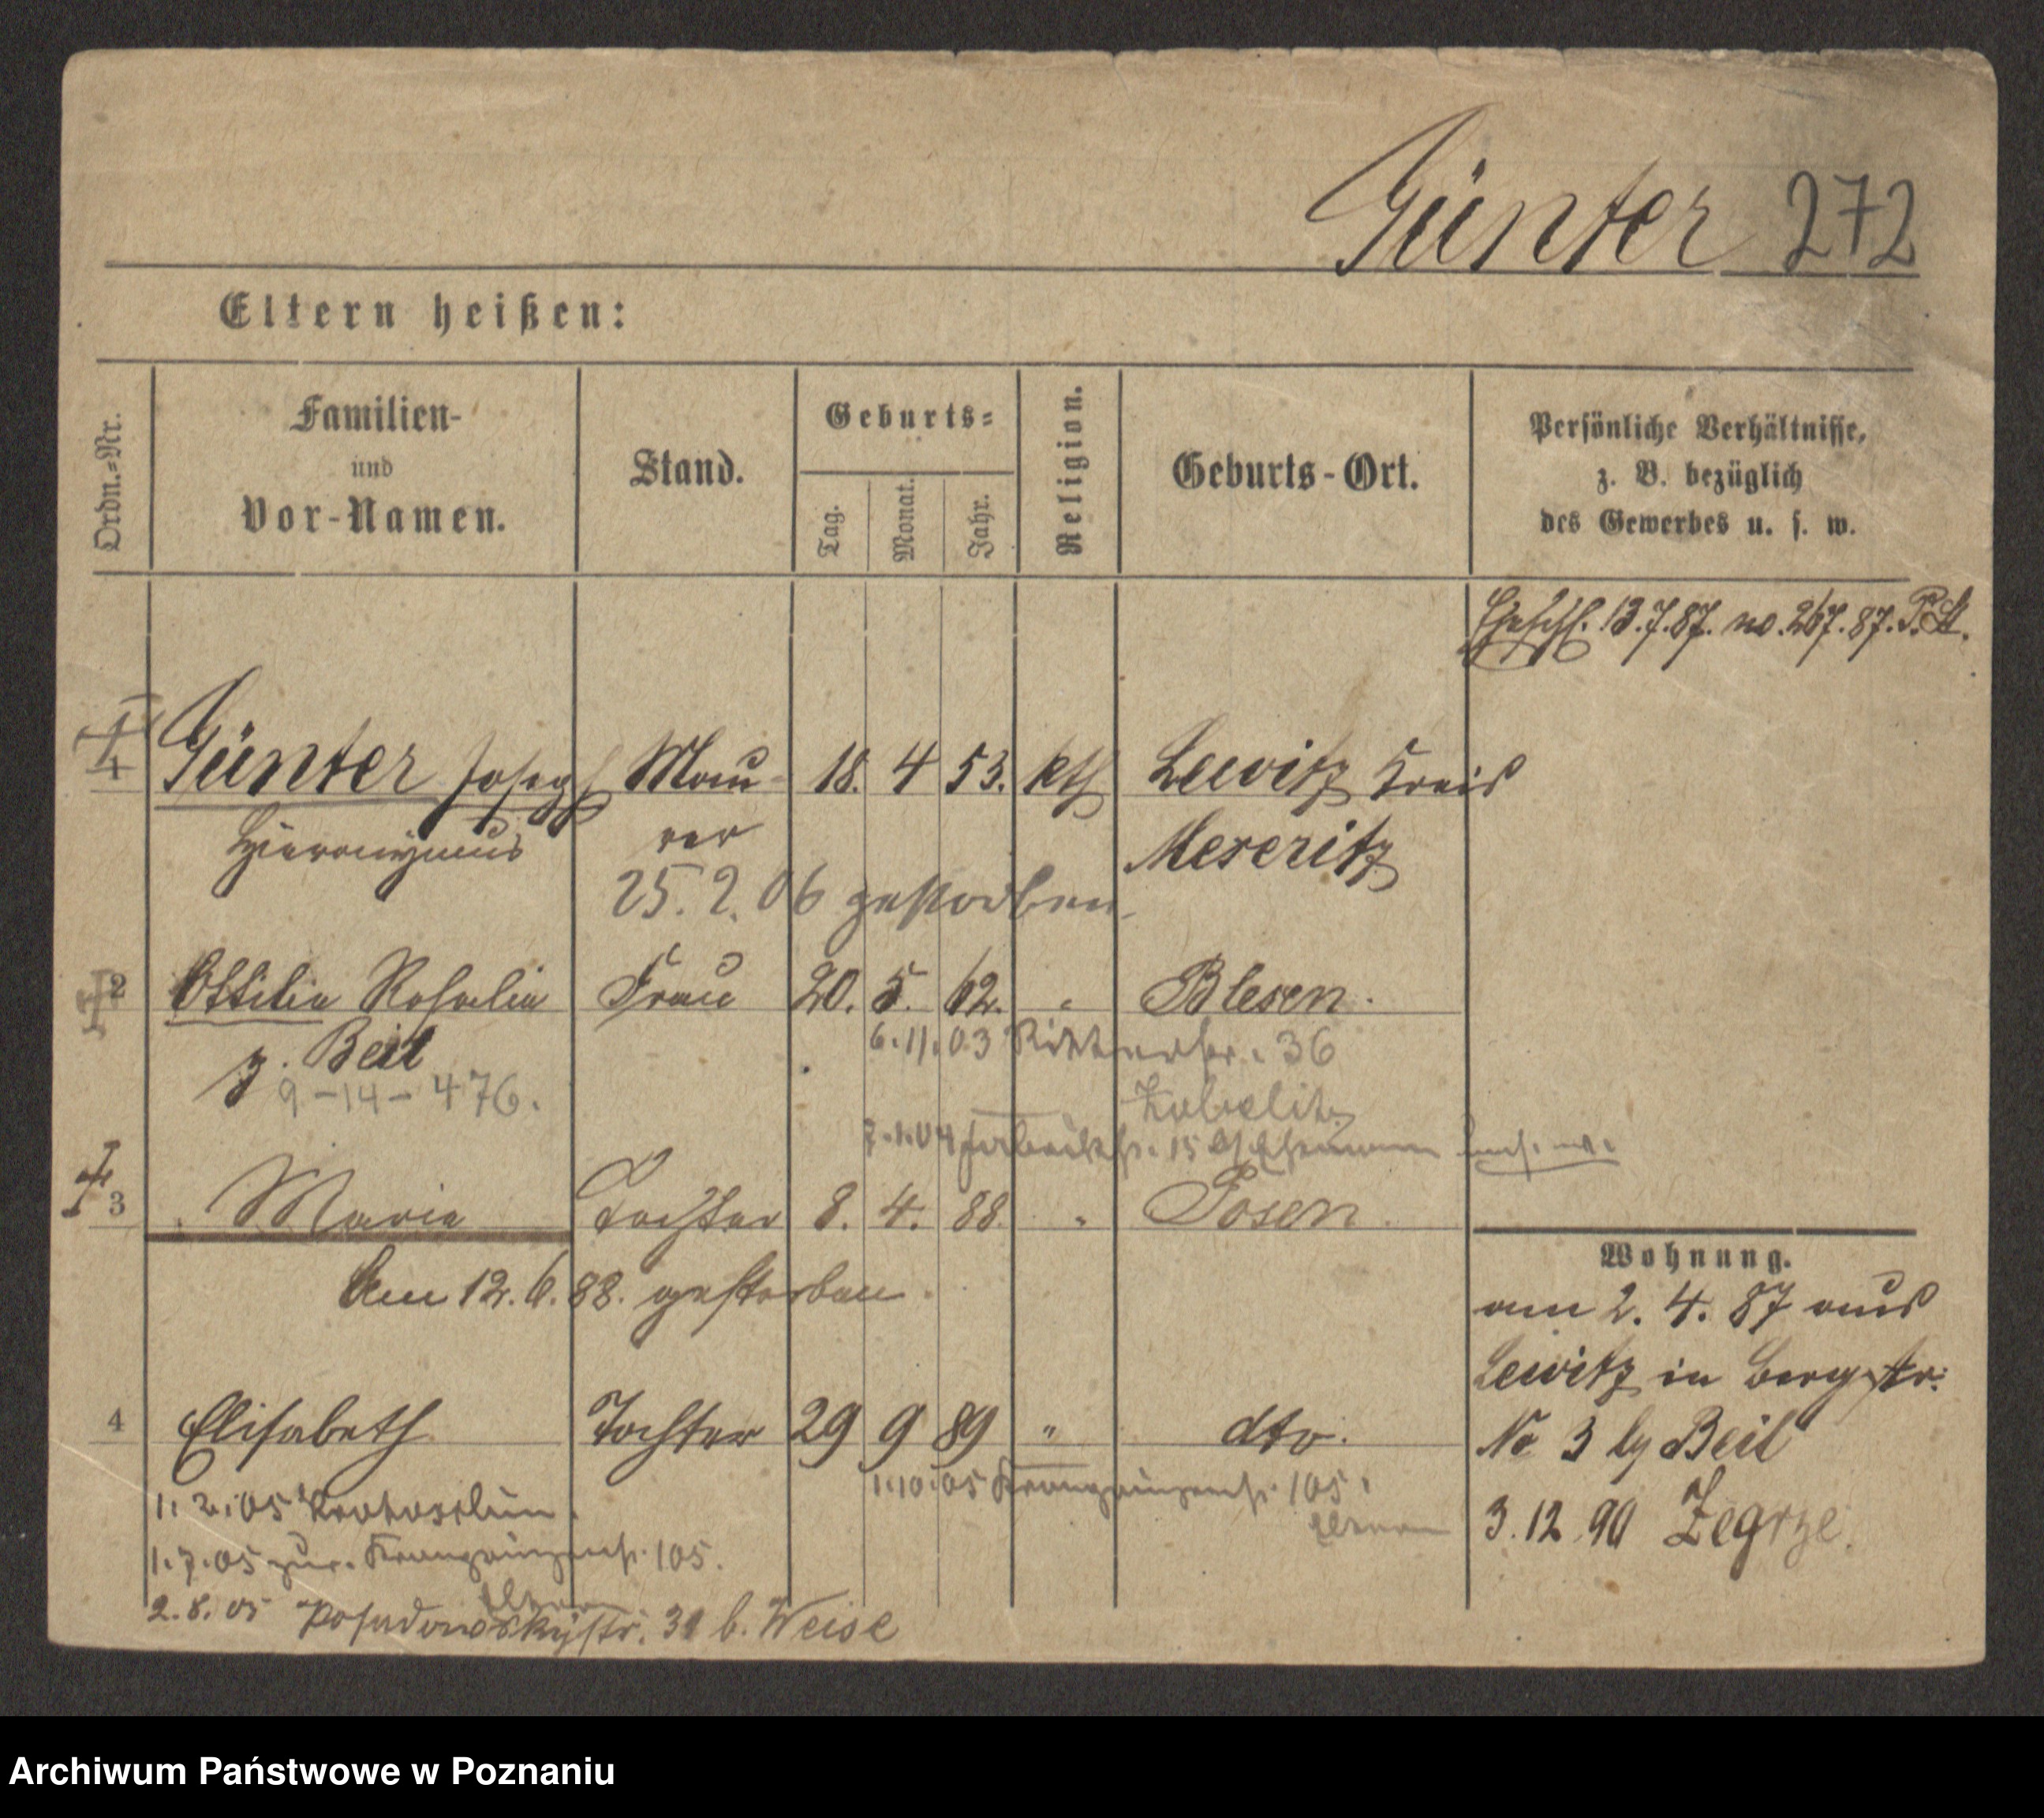 Günter 272
Eltern heißen:
Ordn.=Nr.
Familien-
und
Vor-Namen.
Stand.
Geburts=
Tag.
Monat.
Jahr.
Religion.
Geburts-Ort.
Persönliche Verhältnisse,
z. B. bezüglich
des Gewerbes u. s. w.
Eheschl. 13.7.87. no. 267. 87. P. St.
1 Günter Joseph Mau- 18. 4 53. kth Lewitz Kreis
Hieronymus rer Meseritz
25. 2. 06 gestorben
2 Ottilie Rosalie Frau 20. 5. 62. " Blesen.
g. Beil 6.11.03 Ritterstr. 36
9-14-476.
7.1.04 15
3 Maria Tochter 8. 4. 88. " Posen.
Am 12. 6. 88. gestorben.
Wohnung.
am 2. 4. 87 aus
Lewitz in Bergstr.
No 3 bei Beil
3.12.90 Zegrze.
4 Elisabeth Tochter 29 9 89 " dto.
1.10.05 Kronprinzenstr. 105.
Eltern
1.2.05 Krotoschin.
1.7.05 zur. Kronprinzenstr. 105.
Eltern
2.8.05 Posadowskystr. 31 b. Weise
Archiwum Państwowe w Poznaniu